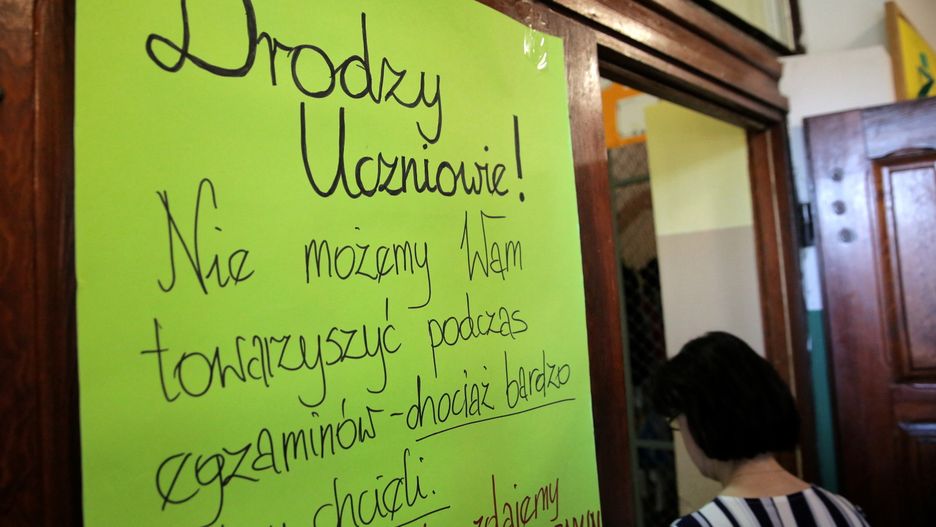 Drodzy
Uczniowie!
Nie możemy Wam
towarzyszyć podczas
egzaminów - chociaż bardzo
chcieli.
zdajemy